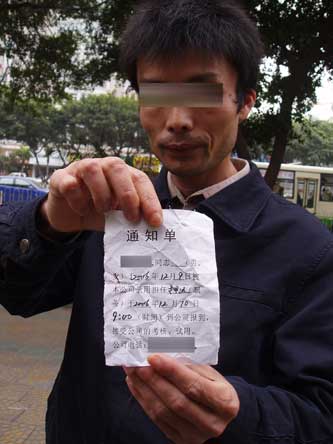 通知单
同志 (男、
女)2006年12月9日被
本公司录用担任 (职
务)12006年12月10日
9:00 (时间)到公司报到,
接受公司的考核、试用。
公司电话: